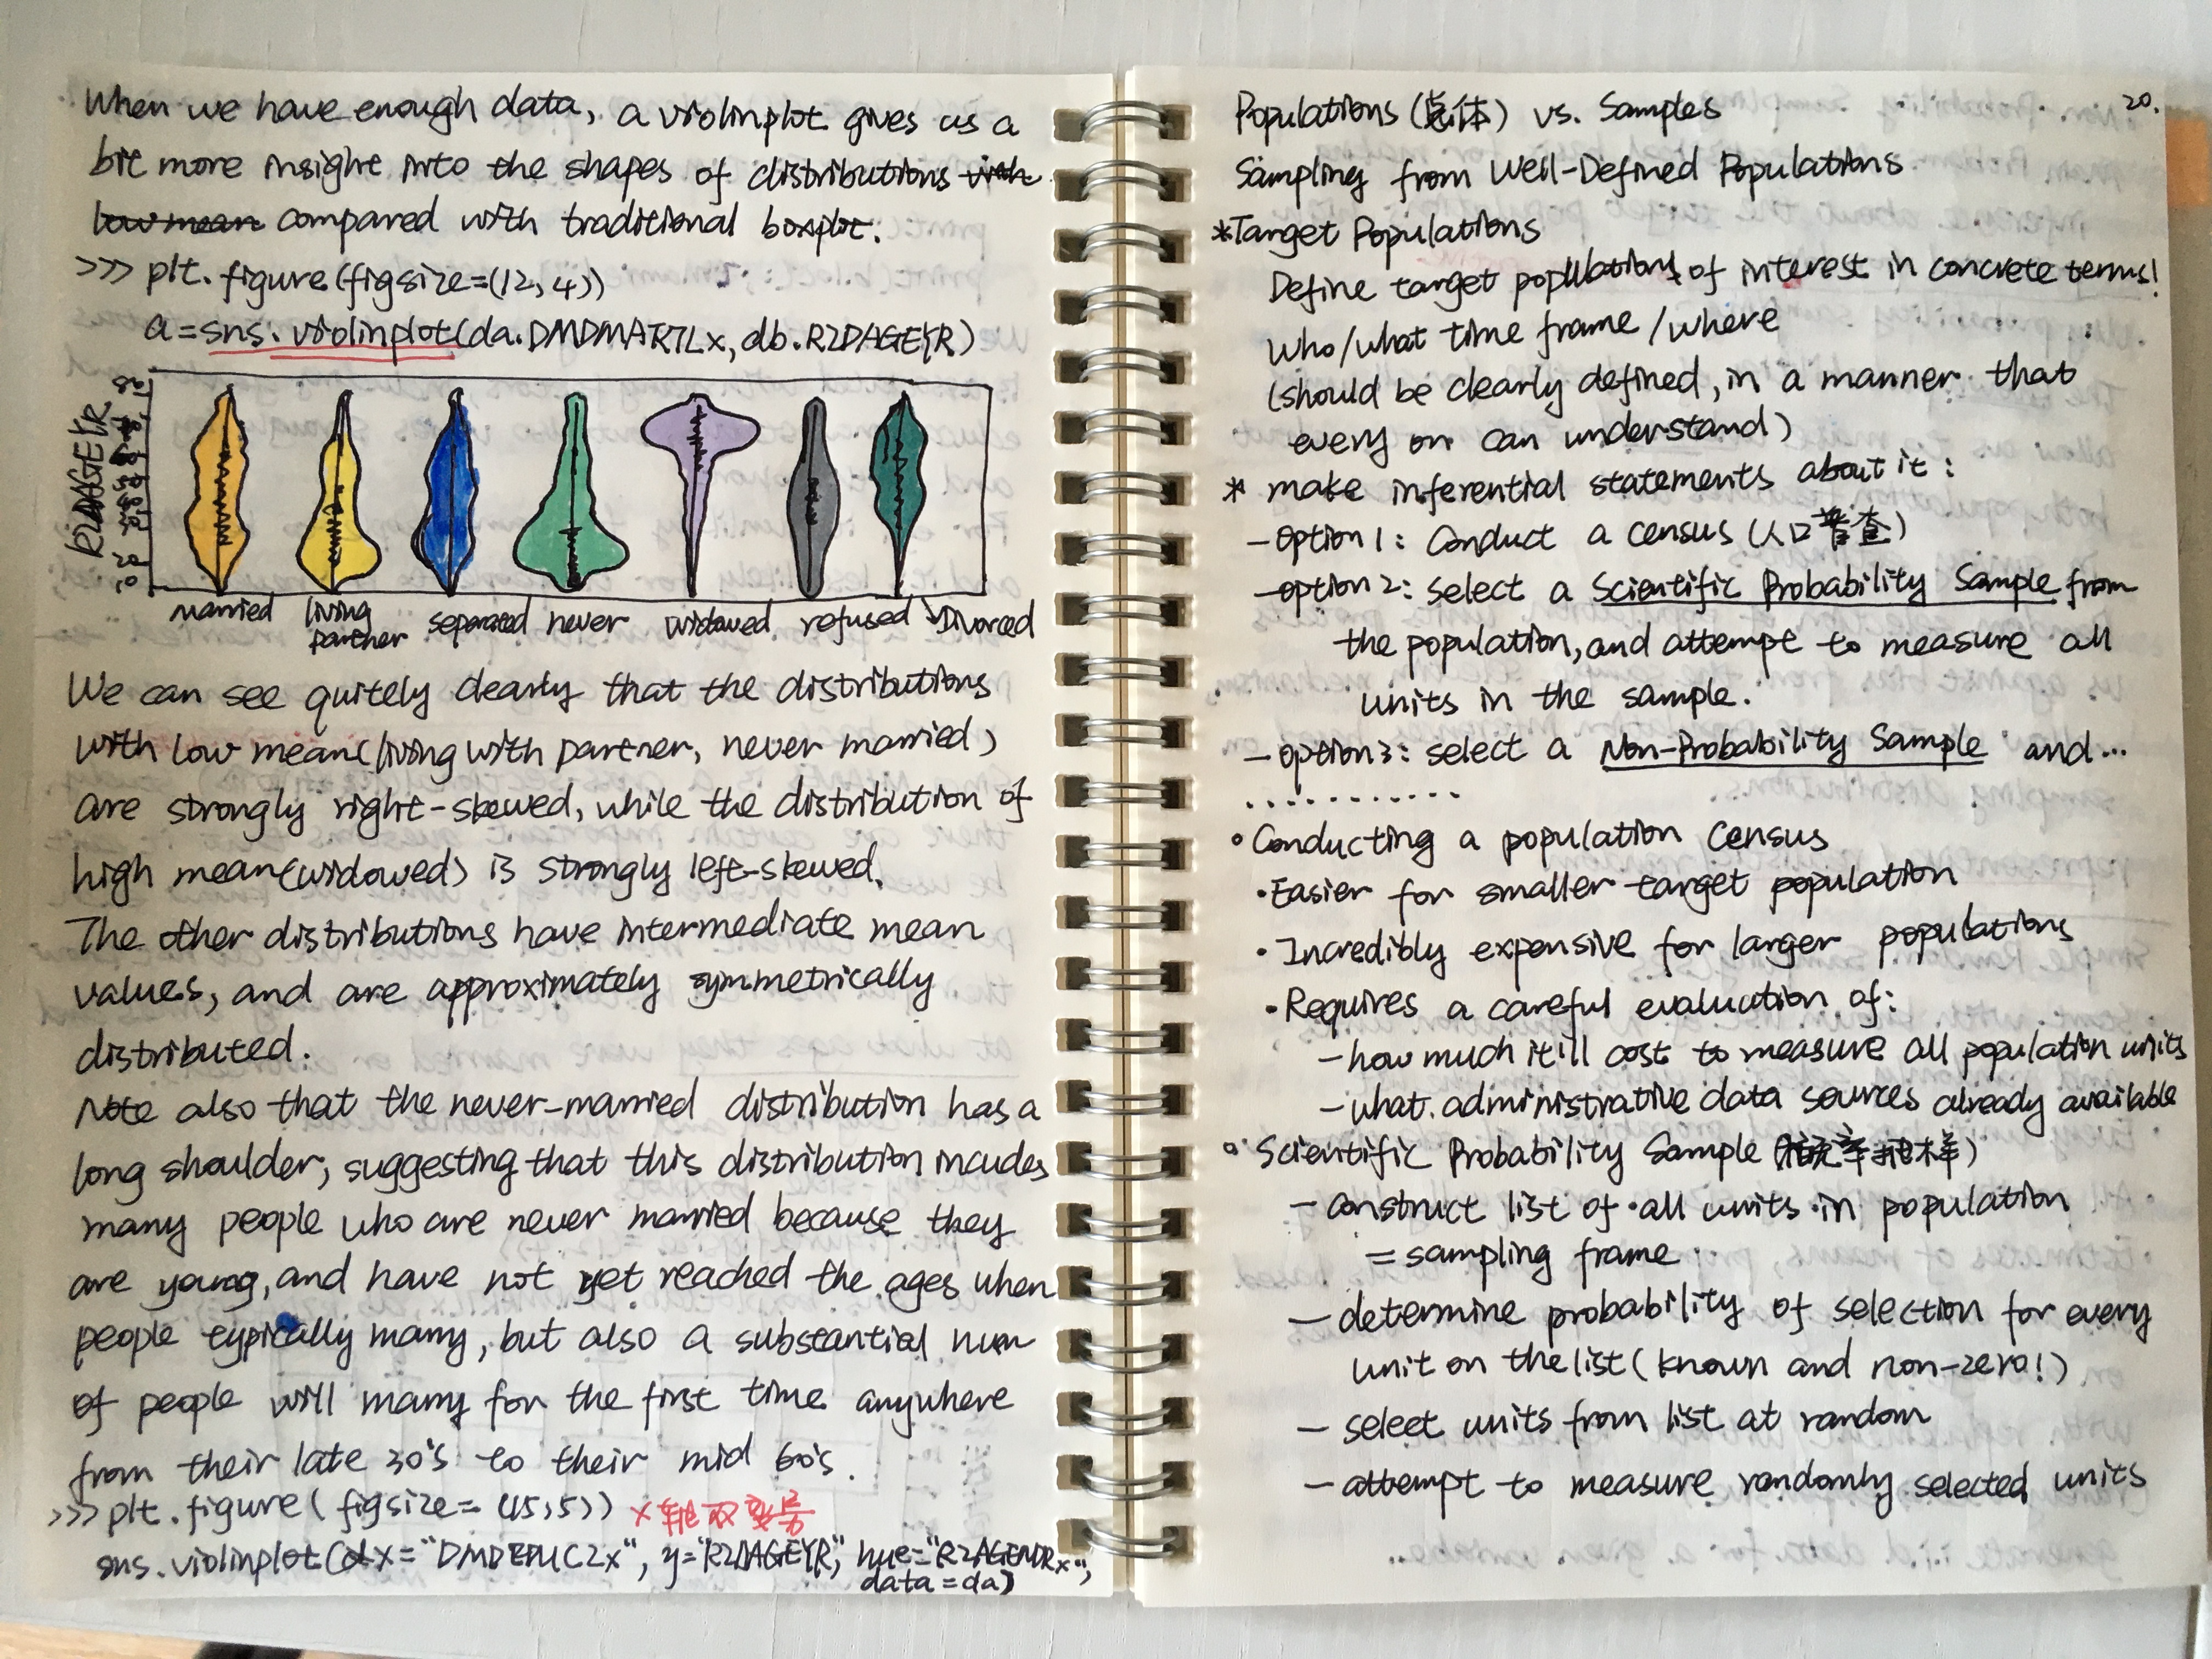 When we have enough data, a violinplot gives us a
bit more insight into the shapes of distributions with
low mean compared with traditional boxplot.
>>> plt.figure(figsize=(12,4))
a=sns.violinplot(da.DMDMARTLx, db.RIDAGEYR)
RIDAGEYR
married living partner separated never widowed refused Divorced
We can see quitely clearly that the distributions
with low mean(living with partner, never married)
are strongly right-skewed, while the distribution of
high mean(widowed) is strongly left-skewed.
The other distributions have intermediate mean
values, and are approximately symmetrically
distributed.
Note also that the never-married distribution has a
long shoulder, suggesting that this distribution incudes
many people who are never married because they
are young, and have not yet reached the ages when
people typically marry, but also a substantial num
of people will marry for the first time anywhere
from their late 30's to their mid 60's.
>>> plt.figure(figsize=(15,5)) x轴双变量
sns.violinplot(x="DMDEDUC2x", y="RIDAGEYR", hue="RIAGENDRx",
data=da)
20.
Populations (总体) vs. Samples
Sampling from Well-Defined Populations
*Target Populations
Define target populations of interest in concrete terms!
who/what time frame/where
(should be clearly defined, in a manner that
every on can understand)
* make inferential statements about it:
-Option1: Conduct a census (人口普查)
-option2: select a Scientific Probability Sample from
the population, and attempt to measure all
units in the sample.
-option3: select a Non-Probability Sample and...
...........
° Conducting a population Census
·Easier for smaller target population
·Incredibly expensive for larger populations
·Requires a careful evaluation of:
-how much it'll cost to measure all population units
-what administrative data sources already available
° Scientific Probability Sample (概率抽样)
- construct list of all units in population
= sampling frame
- determine probability of selection for every
unit on the list (known and non-zero!)
- select units from list at random
- attempt to measure randomly selected units